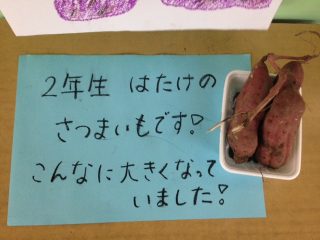 2年生 はたけの
さつまいもです!
こんなに大きくなって
いました!